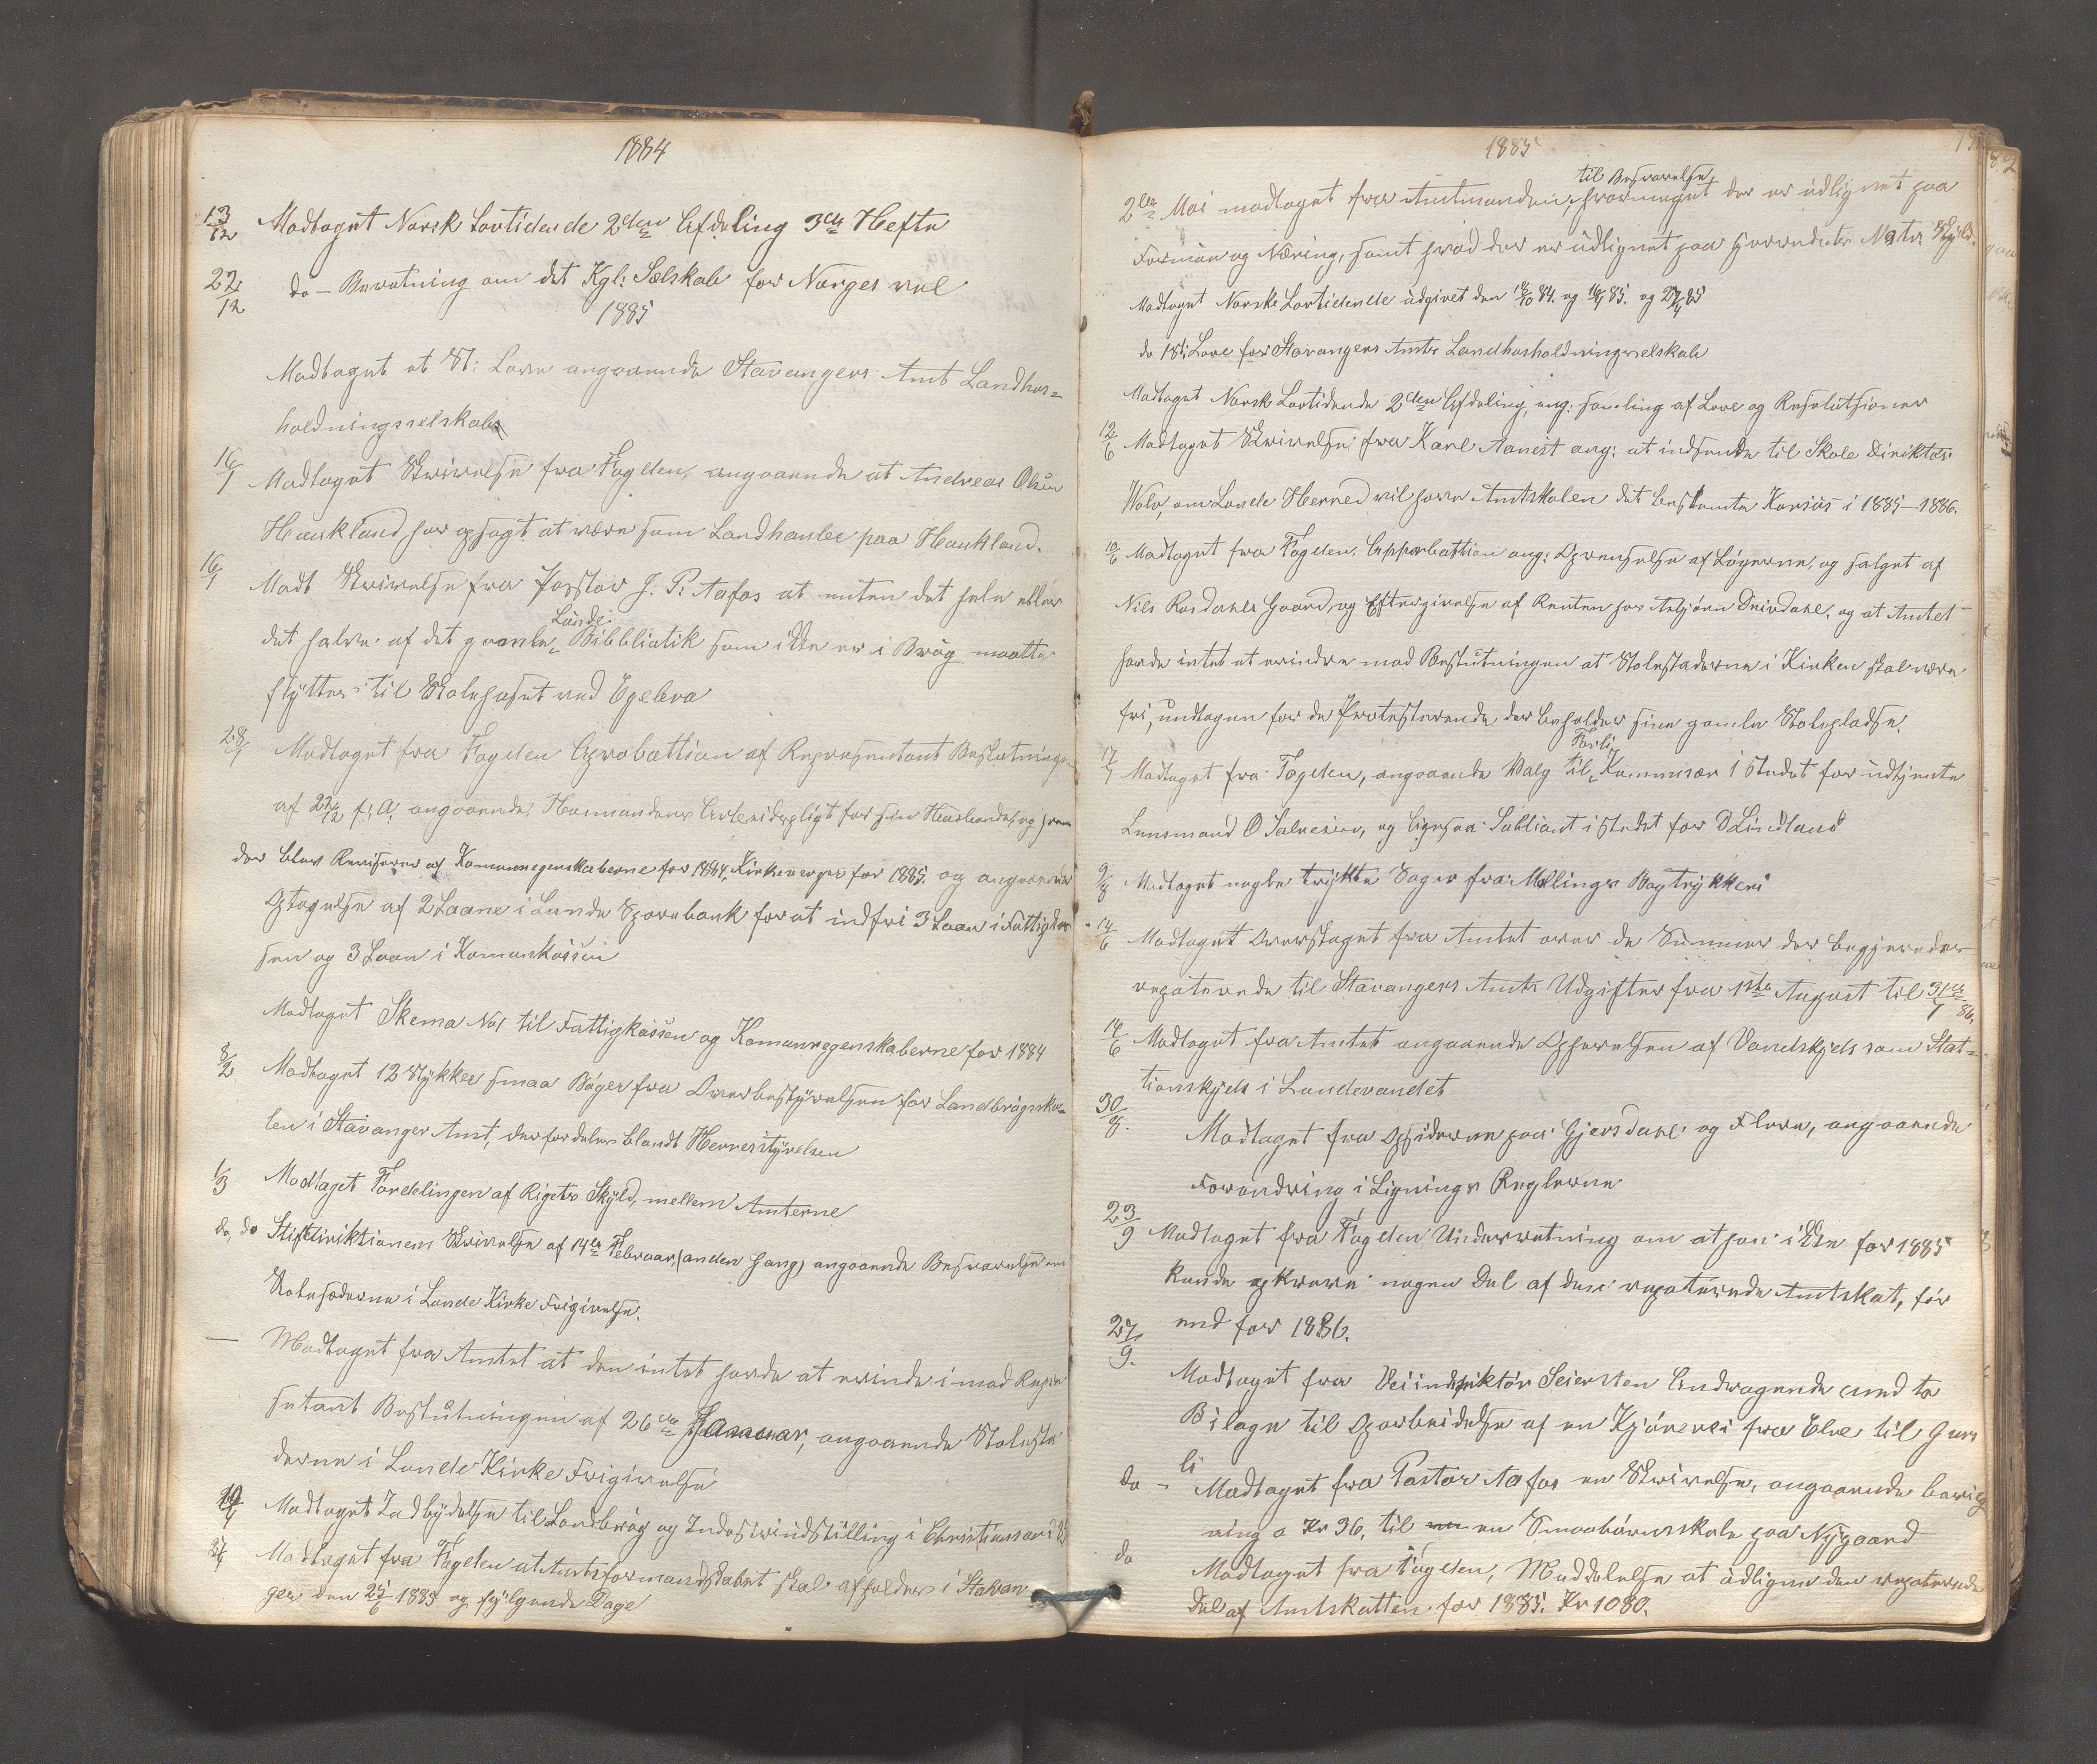 1884
13/12 Modtaget Norsk Lovtidende 2den Afdeling 3die Hefte
22/12 do – Beretning om det Kgl: Selskab for Norges vel
1885
Modtaget et St: Love angaaende Stavangers Amt Landhus=
holdningsselskab
16/1 Modtaget Skrivelse fra Fogden, angaaende at Andreas Olsen
Haukland har opsagt at være som Landhanler paa Haukland.
16/1 Modt Skrivelse fra Pastor J. P. Aafos at enten det hele eller
Lunde
det halve af det gamle Bibbliotik som ikke er i Brug maatte
flyttes til Skolehuset ved Egebro
28/1 Modtaget fra Fogden Aprobattion af Representant Beslutninger
af 22/12 f: A: angaaende Husmandens Arbeidspligt for sin Husbonde, og hvem
der blev Revisorer af Komuneregenskaberne for 1884, Kirkeverger for 1885. og angaaende
Optagelse af 2 Laane i Lunde Sparebank for at indfri 3 Laan i Fattigkas
sen og 3 Laan i Komunekassen
Modtaget Skema No 1 til Fattigkassen og Komunregenskaberne for 1884
8/2 Modtaget 12 Stykker smaa Bøger fra Overbestyrelsen for Landbrugssko=
len i Stavanger Amt, der fordeles blandt Herresstyrelsen
1/3 Modtaget Fordelingen af Rigets Skyld, mellem Amterne
do, do Stiftdiriktionens Skrivelse af 14de Februar, (anden Gang) angaaende Besvarelse om
Stolesæderne i Lunde Kirke Frigivelse.
— Modtaget fra Amtet at den intet havde at erindre imod Repre
sentant Beslutningen af 26de Januar, angaaende Stolesta
derne i Lunde Kirke Frigivelse
Modtaget Indbydelse til Landbrug og Industriudstilling i Christianssand
Modtaget fra Fogden at Amtsformandskabet skal afholdes i Stavan
ger den 25/6 1885 og følgende Dage
1885
til Besvarelse
2den Mai modtaget fra Amtmanden, hvormeget der er udlignet paa
Formue og Næring, samt hvad der er udlignet paa hverendeste Matr Skyld.
Modtaget Norske Lovtidende udgivet den 18/10 84. og 16/1 85. og 27/4 85
do 1 St: Love for Stavangers Amts Landhusholdningsselskab
Modtaget Norsk Lovtidende 2den Afdeling, ang: samling af Love og Resolutsioner
12/6 Modtaget Skrivelse fra Karl Aanest ang: at indsende til Skole Diriktør
Wolr, om Lunde Herred vil have Amtskolen det bestemte Kursus i 1885–1886.
10/6 Modtaget fra Fogden, Apparbattion ang: Oprenselse af Løgerne, og salget af
Nils Rosdahls Gaard, og Eftergivelse af Renten hos Asbjørn Drivdahl, og at Amtet
havde intet at erindre mod Beslutningen at Stolestaderne i Kirken skal være
fri, undtagen for de Protesterende der beholder sine gamle Stolepladse.
Forli
17/7 Modtaget fra Fogden, angaaende Valg til Kommisær i stedet for udtjente
Lensmand O Salvesen, og ligesaa Subliant i stedet for O Lindland
9/8 Modtaget nogle trykte Sager fra Mellings Bogtrykkeri
14/6 Modtaget Overslaget fra Amtet over de Summer der begjæredes
repaterede til Stavangers Amts Udgifter fra 1ste August til 31te/7 86.
14/6 Modtaget fra Amtet angaaende Ophævelsen af Vandskyds som Stat=
tionskyds i Lundevandet
30/8. Modtaget fra Opsiderne paa Gjersdahl og Flere, angaaende
Forandring i Lignings Reglerne
23/9 Modtaget fra Fogden Underretning om at han ikke for 1885
kunde opkræve nogen Del af den repaterede Amtskat, før
end for 1886.
27/9. Modtaget fra Veiindspektør Seiersten Andragende med to
Bilage til Oparbeidelse af en Kjørevei fra Elve til Gurs
li
do – Modtaget fra Pastor Aafos en Skrivelse, angaaende bevilg
ning a Kr 36, til en Smaabørnsskole paa Nygaard
do Modtaget fra Fogden, Meddelelse at udligne den repaterede
Del af Amtskatten for 1885. Kr 1080.